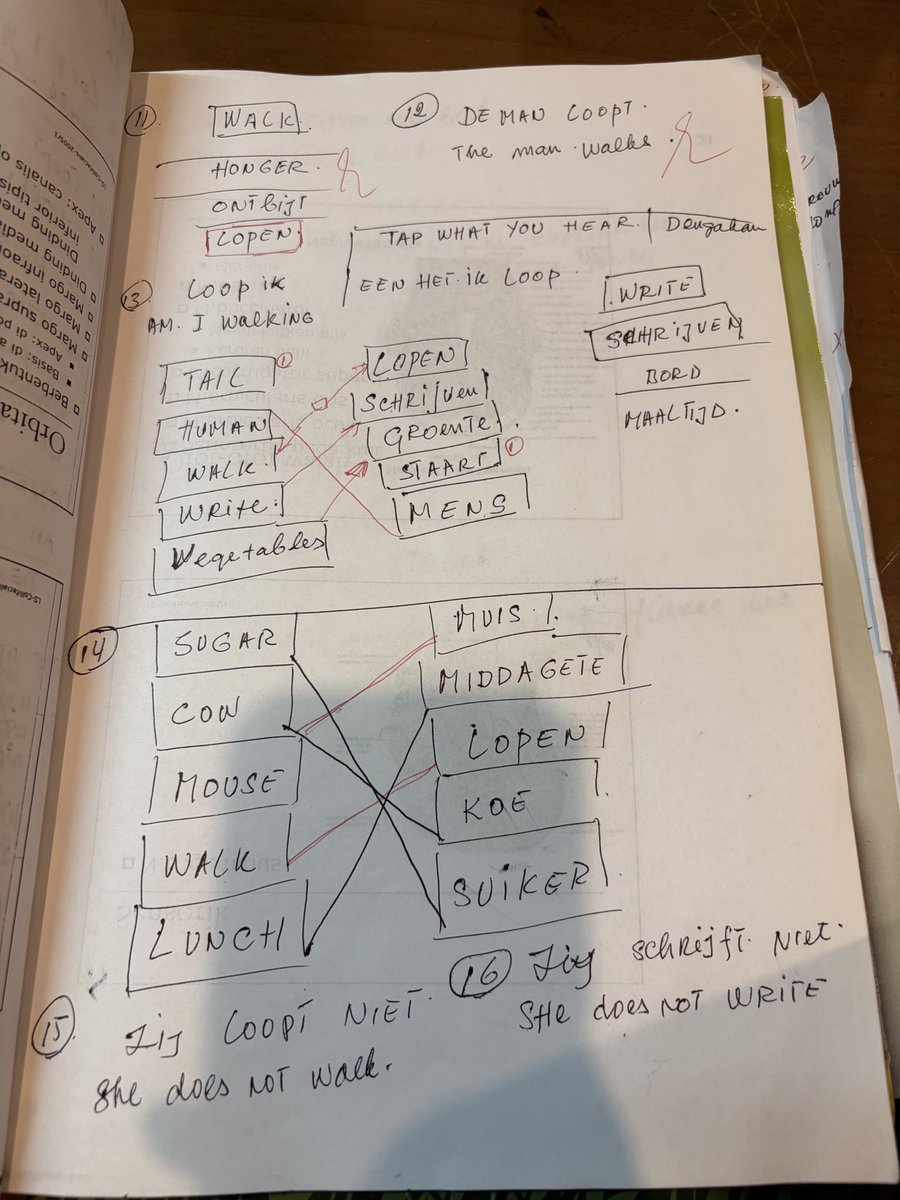 11
WALK.
HONGER.
ONTBIJT
LOPEN.
12 DE MAN LOOPT.
The man walks.
13
LOOP IK
AM. I WALKING
TAP WHAT YOU HEAR. Dengarkan
EEN HET. IK LOOP.
WRITE
SCHRIJVEN
BORD
MAALTIJD.
TAIL 1
HUMAN
WALK.
Write.
Vegetables
LOPEN
SCHRIJVEN
GROENTE.
STAART 1
MENS
14
SUGAR
COW
MOUSE
WALK
LUNCH
MUIS
MIDDAGETE
LOPEN
KOE
SUIKER
15
Zij LOOPT NIET.
She does NOT walk.
16 Zij schrijft niet.
SHe does NOT WRITE
Orbita
Berbentuk
Basis: di a
Apex: di po
Margo supra
Margo latera
Margo infrao
Dinding media
Dinding med
Apex: inferior tipis
canalis o